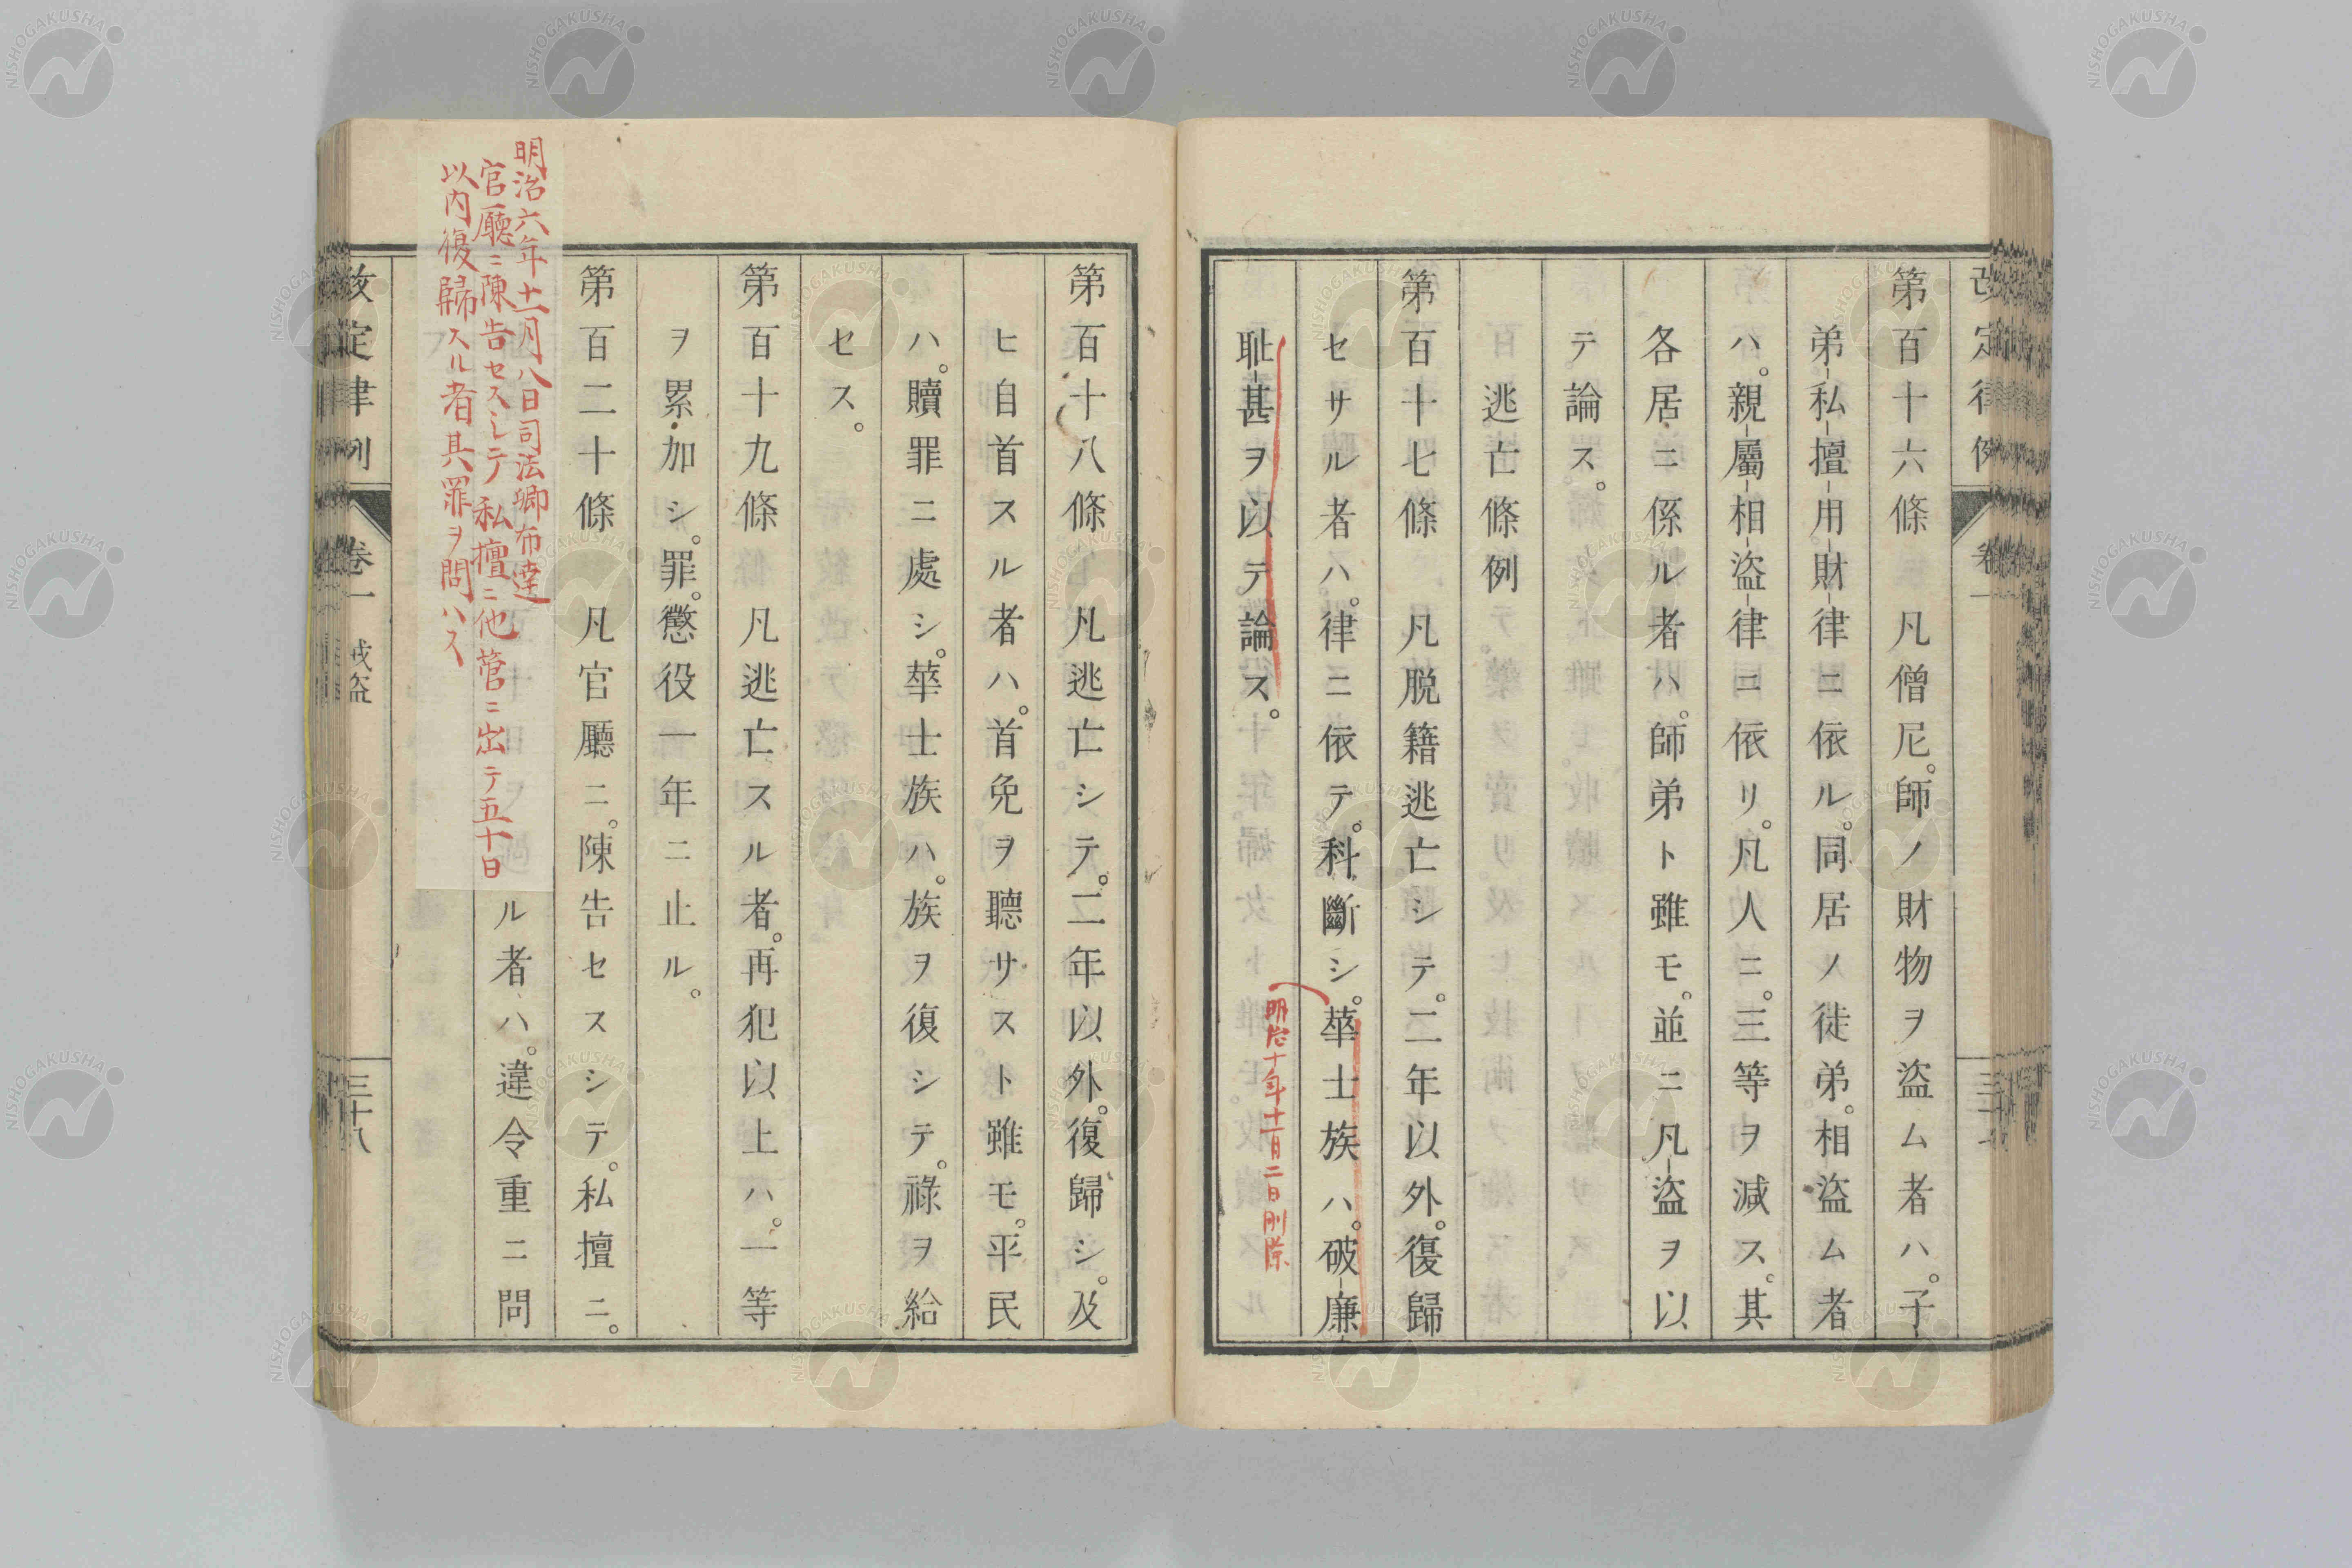 第百十六條　凡僧尼。師ノ財物ヲ盜ム者ハ。子
弟私擅用財律ニ依ル。同居ノ徒弟。相盜ム者
ハ。親屬相盜律ニ依リ。凡人ニ。三等ヲ減ス。其
各居ニ係ル者ハ。師弟ト雖モ。並ニ凡盜ヲ以
テ論ス。
逃亡條例
第百十七條　凡脱籍逃亡シテ。二年以外。復歸
セサル者ハ。律ニ依テ。科斷シ。華士族ハ。破廉
耻甚ヲ以テ論ス。
明治十年十一月二日刪除
第百十八條　凡逃亡シテ。二年以外。復歸シ。及
ヒ自首スル者ハ。首免ヲ聽サスト雖モ。平民
ハ。贖罪ニ處シ。華士族ハ。族ヲ復シテ。祿ヲ給
セス。
第百十九條　凡逃亡スル者。再犯以上ハ。一等
ヲ累加シ。罪。懲役一年ニ止ル。
第百二十條　凡官廳ニ。陳告セスシテ。私擅ニ。
ル者ハ。違令重ニ問
明治六年十一月八日司法卿布達
官廳ニ陳告セスシテ私擅ニ他管ニ出テ五十日
以内復歸スル者其罪ヲ問ハス
改定律例　卷一　賊盜　三十八
NISHOGAKUSHA